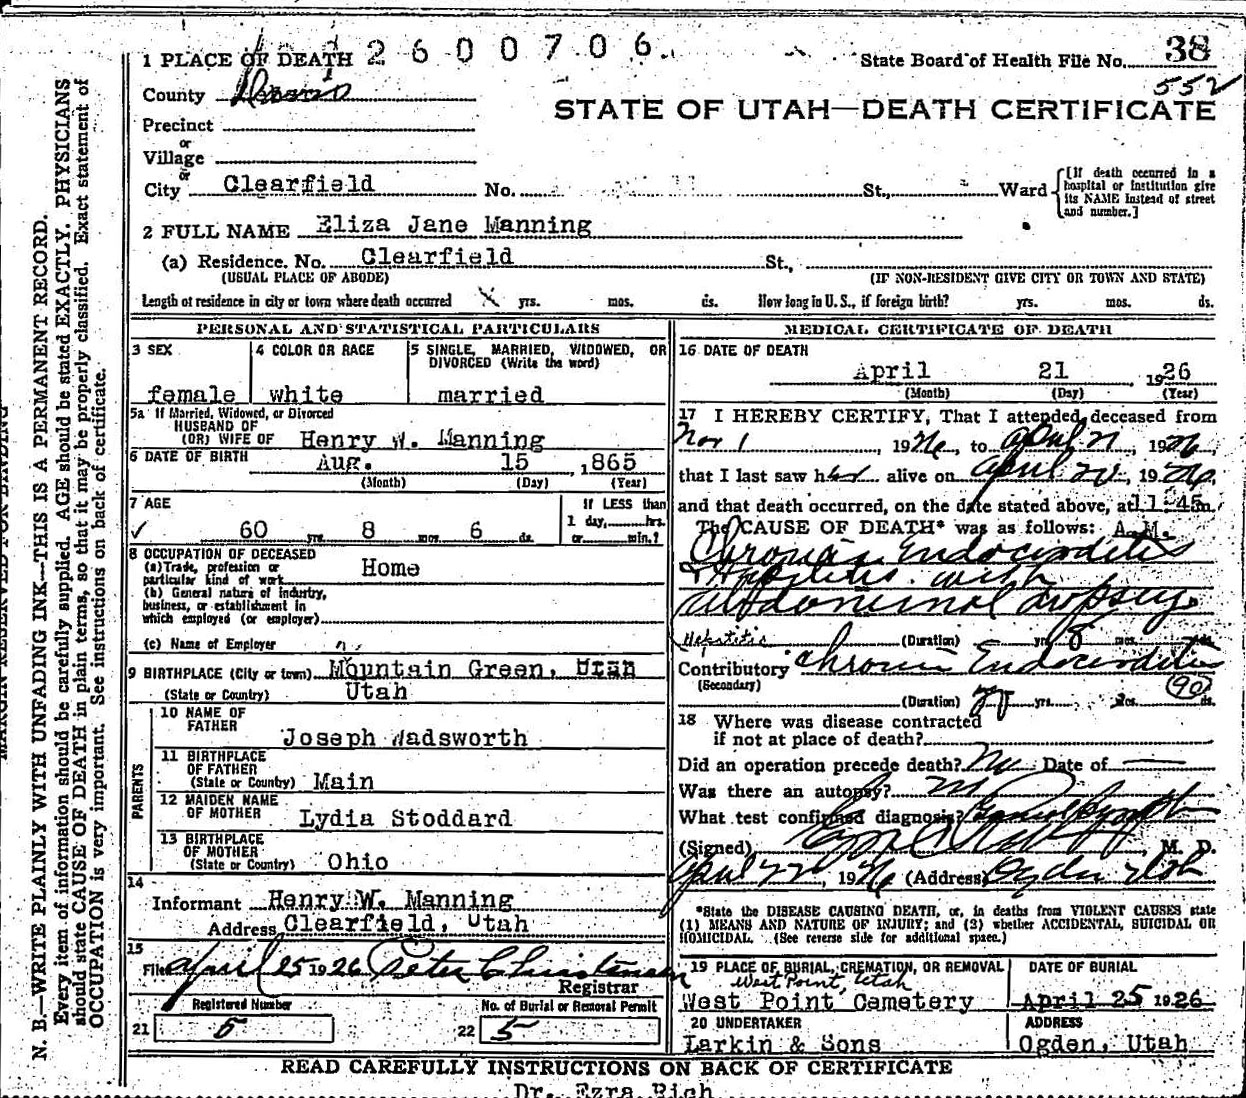 2600706.
1 PLACE OF DEATH
State Board of Health File No. 38
552
County Davis
STATE OF UTAH—DEATH CERTIFICATE
Precinct
or
Village
or
City Clearfield No. St., Ward [If death occurred in a hospital or institution give its NAME instead of street and number.]
2 FULL NAME Eliza Jane Manning
(a) Residence. No. Clearfield St.,
(USUAL PLACE OF ABODE) (IF NON-RESIDENT GIVE CITY OR TOWN AND STATE)
Length of residence in city or town where death occurred yrs. mos. ds. How long in U. S., if foreign birth? yrs. mos. ds.
PERSONAL AND STATISTICAL PARTICULARS
3 SEX
female
4 COLOR OR RACE
white
5 SINGLE, MARRIED, WIDOWED, OR
DIVORCED (Write the word)
married
5a If Married, Widowed, or Divorced
HUSBAND OF
(OR) WIFE OF Henry W. Manning
6 DATE OF BIRTH Aug. 15 ,1865
(Month) (Day) (Year)
7 AGE
✓ 60 yrs. 8 mos. 6 ds.
If LESS than
1 day, hrs.
or min.?
8 OCCUPATION OF DECEASED
(a) Trade, profession or
particular kind of work Home
(b) General nature of industry,
business, or establishment in
which employed (or employer)
(c) Name of Employer
9 BIRTHPLACE (City or town) Mountain Green, Utah
(State or Country) Utah
PARENTS
10 NAME OF
FATHER
Joseph Wadsworth
11 BIRTHPLACE
OF FATHER
(State or Country) Main
12 MAIDEN NAME
OF MOTHER
Lydia Stoddard
13 BIRTHPLACE
OF MOTHER
(State or Country) Ohio
14
Informant Henry W. Manning
Address Clearfield, Utah
15
Filed April 25 1926 Peter Christensen
Registrar
Registered Number
21 5
No. of Burial or Removal Permit
22 5
MEDICAL CERTIFICATE OF DEATH
16 DATE OF DEATH
April 21 , 1926
(Month) (Day) (Year)
17 I HEREBY CERTIFY, That I attended deceased from
Nov 1, 1926, to April 21, 1926,
that I last saw her alive on April 20, 1926,
and that death occurred, on the date stated above, at 11:45m.
The CAUSE OF DEATH* was as follows: A.M.
Chronic Endocarditis
& Hepatitis with
abdominal dropsy.
Hepatitis (Duration) yrs. 8 mos. ds.
Contributory Chronic Endocarditis
(Secondary)
90
(Duration) yrs. mos. ds.
18 Where was disease contracted
if not at place of death?
Did an operation precede death? No Date of —
Was there an autopsy? no
What test confirmed diagnosis?
(Signed) , M. D.
April 22, 1926 (Address) Ogden Utah
*State the DISEASE CAUSING DEATH, or, in deaths from VIOLENT CAUSES state
(1) MEANS AND NATURE OF INJURY; and (2) whether ACCIDENTAL, SUICIDAL OR
HOMICIDAL. (See reverse side for additional space.)
19 PLACE OF BURIAL, CREMATION, OR REMOVAL
West Point, Utah
West Point Cemetery
DATE OF BURIAL
April 25 1926
20 UNDERTAKER
Larkin & Sons
ADDRESS
Ogden, Utah
READ CAREFULLY INSTRUCTIONS ON BACK OF CERTIFICATE
Dr. Ezra Rich
MARGIN RESERVED FOR BINDING
N. B.—WRITE PLAINLY WITH UNFADING INK—THIS IS A PERMANENT RECORD.
Every item of information should be carefully supplied. AGE should be stated EXACTLY. PHYSICIANS
should state CAUSE OF DEATH in plain terms, so that it may be properly classified. Exact statement of
OCCUPATION is very important. See instructions on back of certificate.